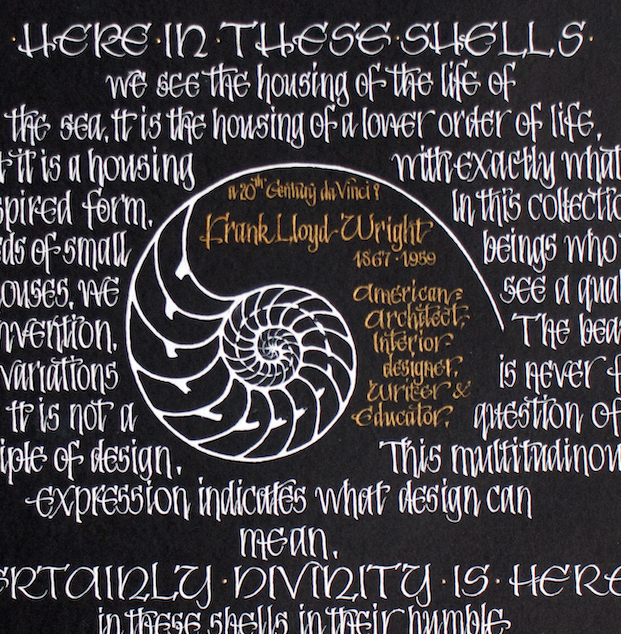 ·HERE·IN·THESE·SHELLS·
we see the housing of the life of
the sea. It is the housing of a lower order of life,
t it is a housing with exactly what
spired form. In this collectio
ds of small beings who
ouses, we see a qual
nvention. The bea
variations is never f
It is not a question of
iple of design. This multitudinou
expression indicates what design can
mean.
ERTAINLY·DIVINITY·IS·HERE
in these shells in their humble
a 20th Century da Vinci?
Frank Lloyd Wright
1867·1959
American
Architect,
Interior
designer,
Writer &
Educator.